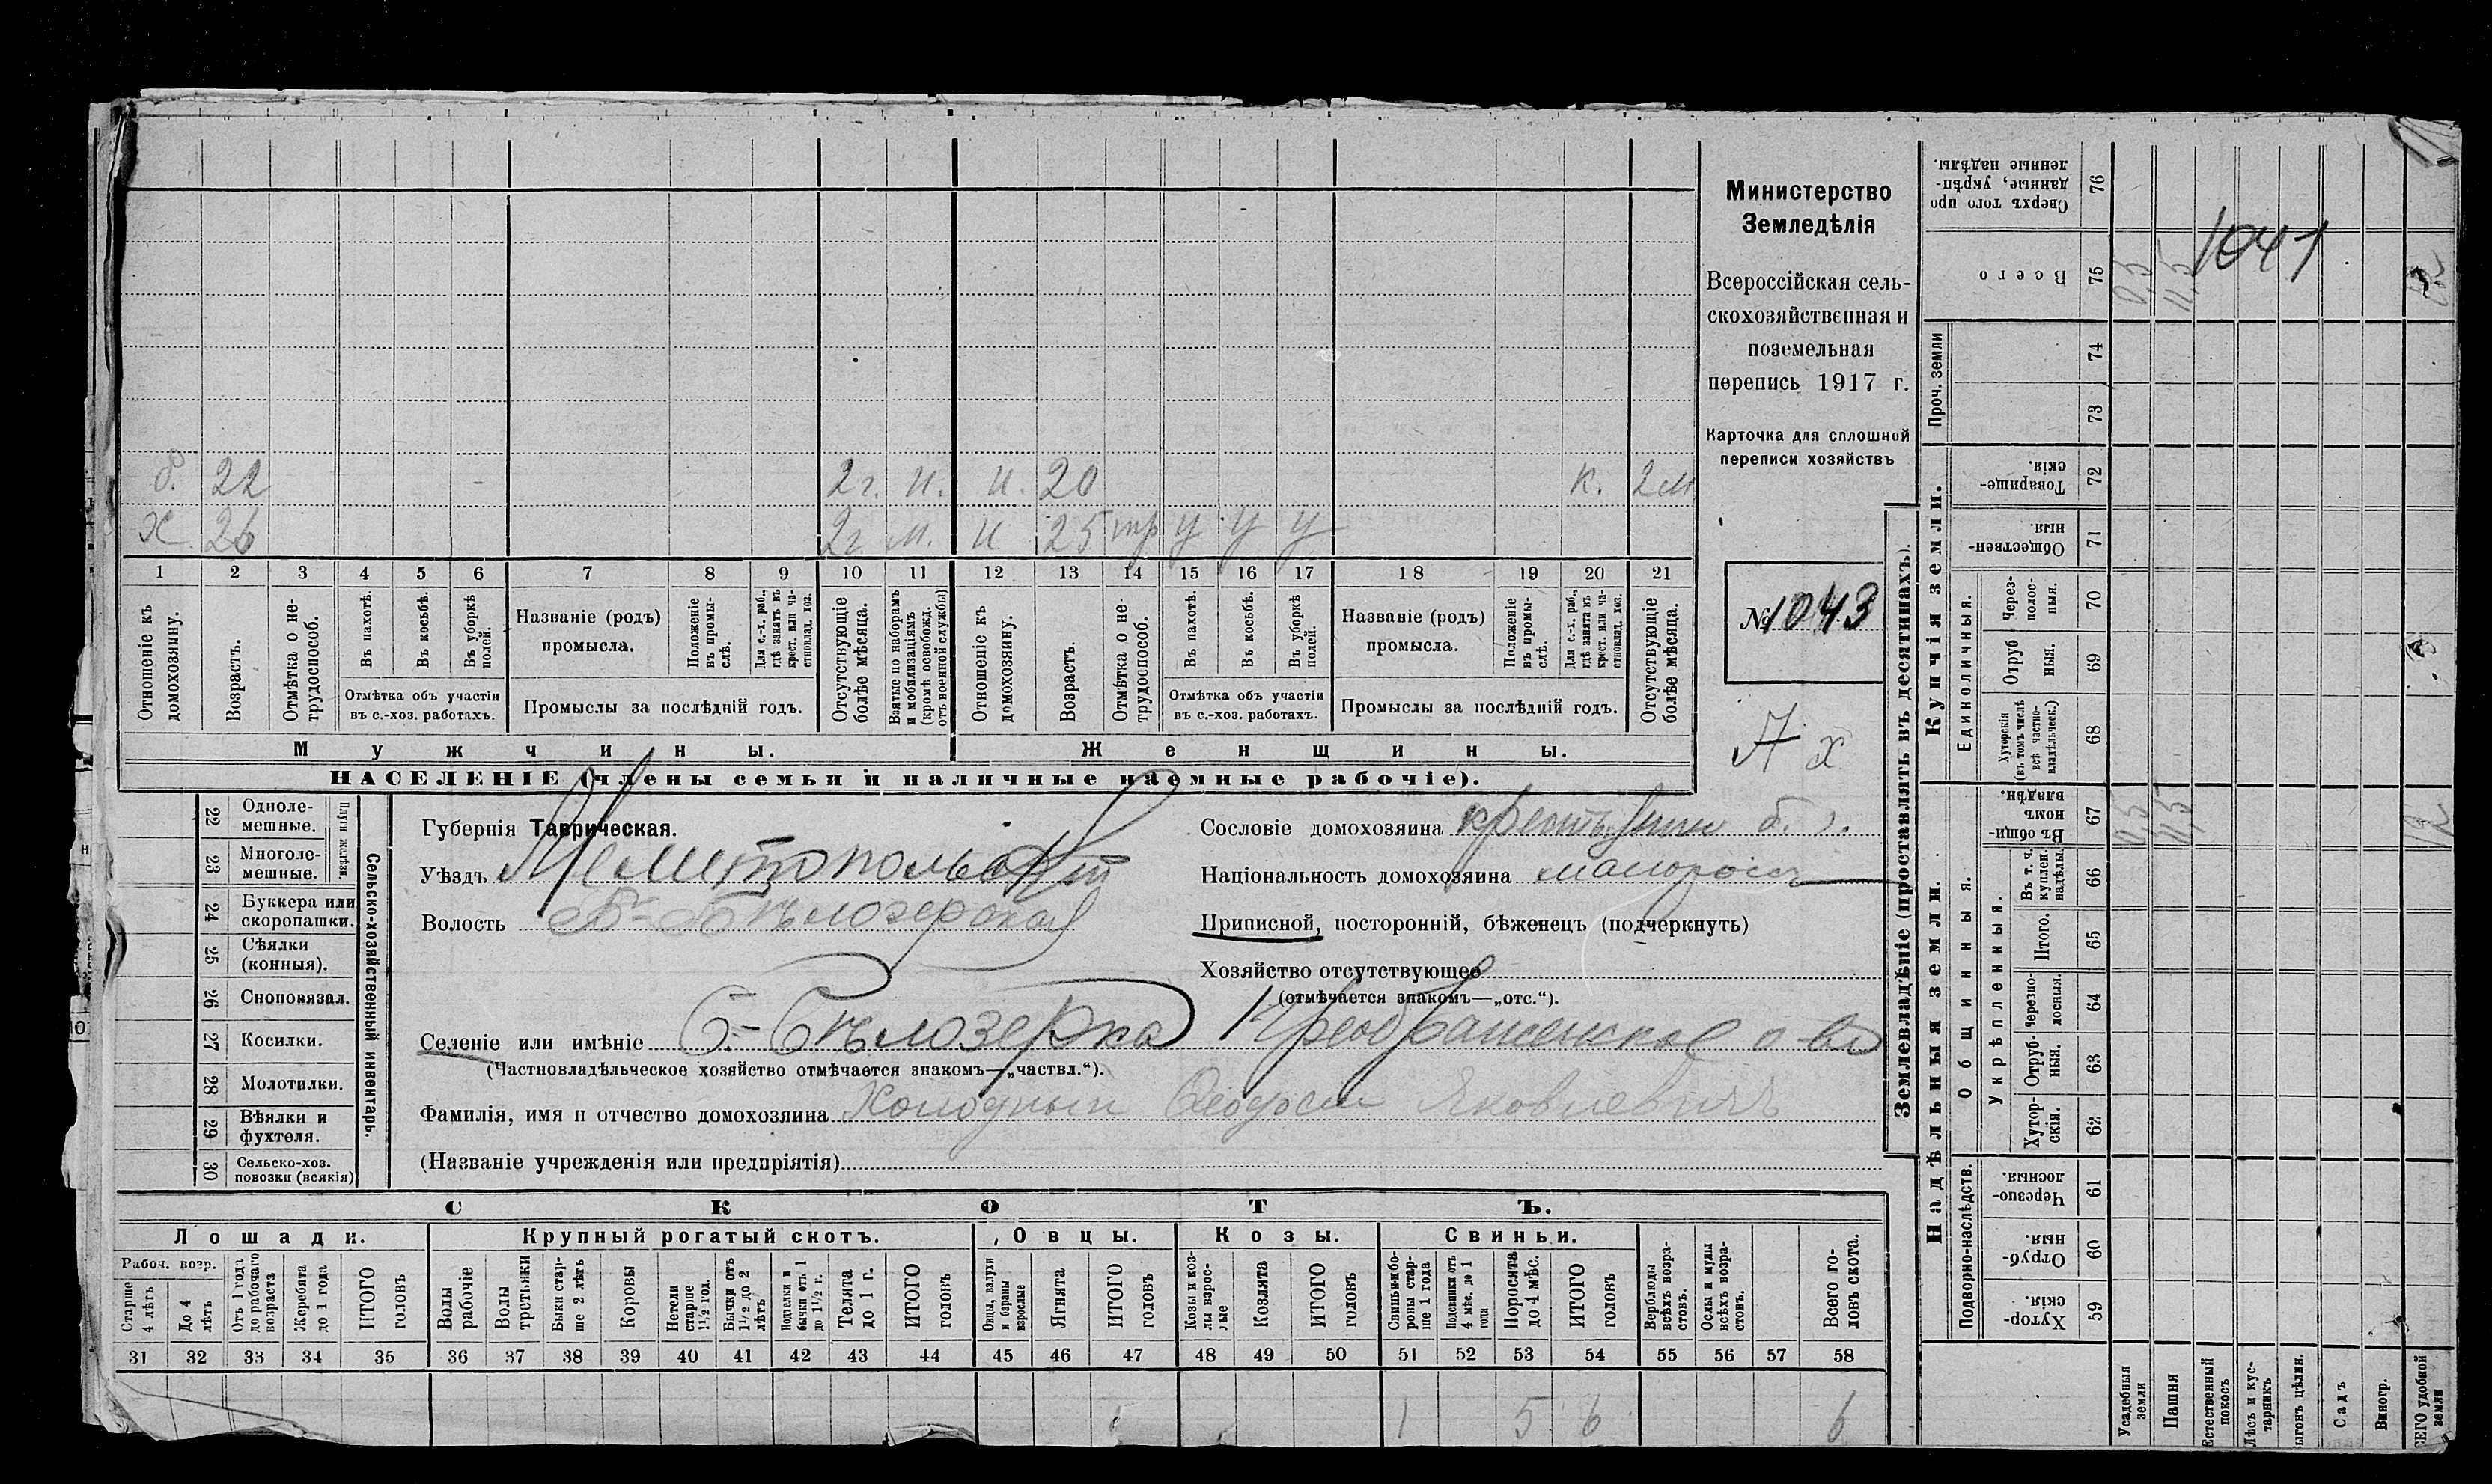 б. 22 2г. н. н. 20 к. 2м
х 26 2г м. н 25 тр у у у
1 2 3 4 5 6 7 8 9 10 11 12 13 14 15 16 17 18 19 20 21
Отношеніе къ домохозяину.
Возрастъ.
Отмѣтка о не-
трудоспособ.
Въ пахотѣ.
Въ косьбѣ.
Въ уборкѣ
полей.
Отмѣтка объ участіи
въ с.-хоз. работахъ.
Названіе (родъ)
промысла.
Положеніе
въ промы-
слѣ.
Для с.-х. раб.,
гдѣ занятъ въ
крест. или ча-
стновлад. хоз.
Промыслы за послѣдній годъ.
Отсутствующіе
болѣе мѣсяца.
Взятые по наборамъ
и мобилизаціямъ
(кромѣ освобожд.
отъ военной службы)
Отношеніе къ
домохозяину.
Возрастъ.
Отмѣтка о не-
трудоспособ.
Въ пахотѣ.
Въ косьбѣ.
Въ уборкѣ
полей.
Отмѣтка объ участіи
въ с.-хоз. работахъ.
Названіе (родъ)
промысла.
Положеніе
въ промы-
слѣ.
Для с.-х. раб.,
гдѣ занята въ
крест. или ча-
стновлад. хоз.
Промыслы за послѣдній годъ.
Отсутствующіе
болѣе мѣсяца.
Мужчины. Женщины.
НАСЕЛЕНІЕ (члены семьи и наличные наемные рабочіе).
Министерство
Земледѣлія
Всероссійская сель-
скохозяйственная и
поземельная
перепись 1917 г.
Карточка для сплошной
переписи хозяйствъ
№ 1043
А х
22 Одноле-
мешные.
23 Многоле-
мешные.
Плуги желѣзн.
24 Буккера или
скоропашки.
25 Сѣялки
(конныя).
26 Сноповязал.
27 Косилки.
28 Молотилки.
29 Вѣялки и
фухтеля.
30 Сельско-хоз.
повозки (всякія)
Сельско-хозяйственный инвентарь.
Губернія Таврическая.
Уѣздъ Мелитопольскій
Волость Б-Бѣлозерская
Селеніе или имѣніе Б.-Бѣлозерка Преображенское о-во
(Частновладѣльческое хозяйство отмѣчается знакомъ—„частвл.“).
Фамилія, имя и отчество домохозяина Холодный Феодосій Яковлевичъ
(Названіе учрежденія или предпріятія)
Сословіе домохозяина
Національность домохозяина малороссъ
Приписной, посторонній, бѣженецъ (подчеркнуть)
Хозяйство отсутствующее
(отмѣчается знакомъ—„отс.“).
СКОТЪ.
Лошади. Крупный рогатый скотъ. Овцы. Козы. Свиньи.
Рабоч. возр.
Старше
4 лѣтъ
До 4
лѣтъ
Отъ 1 года
до рабочаго
возраста
Жеребята
до 1 года
ИТОГО
головъ
Волы
рабочіе
Волы
третьяки
Быки стар-
ше 2 лѣтъ
Коровы
Нетели
старше
1½ год.
Бычки отъ
1½ до 2
лѣтъ
Подтелки и
бычки отъ 1
до 1½ г.
Телята
до 1 г.
ИТОГО
головъ
Овцы, валухи
и бараны
взрослые
Ягнята
ИТОГО
головъ
Козы и коз-
лы взрос-
лые
Козлята
ИТОГО
головъ
Свиньи и бо-
ровы стар-
ше 1 года
Подсвинки отъ
4 мѣс. до 1
года
Поросята
до 4 мѣс.
ИТОГО
головъ
Верблюды
всѣхъ возра-
стовъ.
Ослы и мулы
всѣхъ возра-
стовъ.
Всего го-
ловъ скота.
31 32 33 34 35 36 37 38 39 40 41 42 43 44 45 46 47 48 49 50 51 52 53 54 55 56 57 58
1 5 6 6
Землевладѣніе (проставлять въ десятинахъ).
Надѣльныя земли. Купчія земли. Проч. земли
Подворно-наслѣдств. Общинныя. Единоличныя.
Укрѣпленныя.
Сверхъ того про
данные, укрѣп-
ленные надѣлы.
76
Всего
75
0,5
11,5
1041
12
74
73
Товарище-
скія.
72
Обществен-
ныя.
71
Через-
полос-
ныя.
70
Отруб
ныя.
69
Хуторскія
(въ томъ числѣ
всѣ частно-
владѣльческ.)
68
Въ общи-
номъ
владѣн.
67
0,5
11,5
12
Въ т. ч.
куплен.
надѣлы.
66
Итого.
65
Черезпо-
лосныя.
64
Отруб-
ныя.
63
Хутор-
скія.
62
Черезпо-
лосныя
61
Отруб-
ныя.
60
Хутор-
скія.
59
Усадебныя
земли
Пашня
Естественный
покосъ
Лѣсъ и кус-
тарникъ
ыгонъ цѣлин.
Садъ
Виногр.
СЕГО удобной
земли